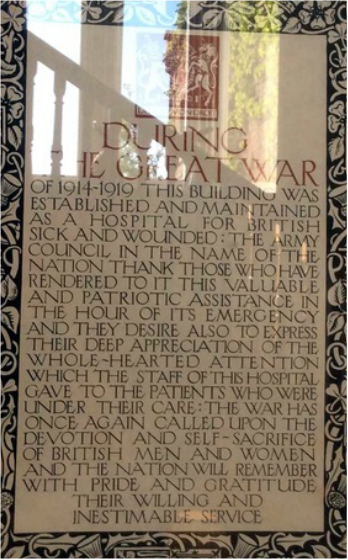 DURING
THE GREAT WAR
OF 1914-1919 THIS BUILDING WAS
ESTABLISHED AND MAINTAINED
AS A HOSPITAL FOR BRITISH
SICK AND WOUNDED: THE ARMY
COUNCIL IN THE NAME OF THE
NATION THANK THOSE WHO HAVE
RENDERED TO IT THIS VALUABLE
AND PATRIOTIC ASSISTANCE IN
THE HOUR OF ITS EMERGENCY
AND THEY DESIRE ALSO TO EXPRESS
THEIR DEEP APPRECIATION OF THE
WHOLE-HEARTED ATTENTION
WHICH THE STAFF OF THIS HOSPITAL
GAVE TO THE PATIENTS WHO WERE
UNDER THEIR CARE: THE WAR HAS
ONCE AGAIN CALLED UPON THE
DEVOTION AND SELF-SACRIFICE
OF BRITISH MEN AND WOMEN
AND THE NATION WILL REMEMBER
WITH PRIDE AND GRATITUDE
THEIR WILLING AND
INESTIMABLE SERVICE